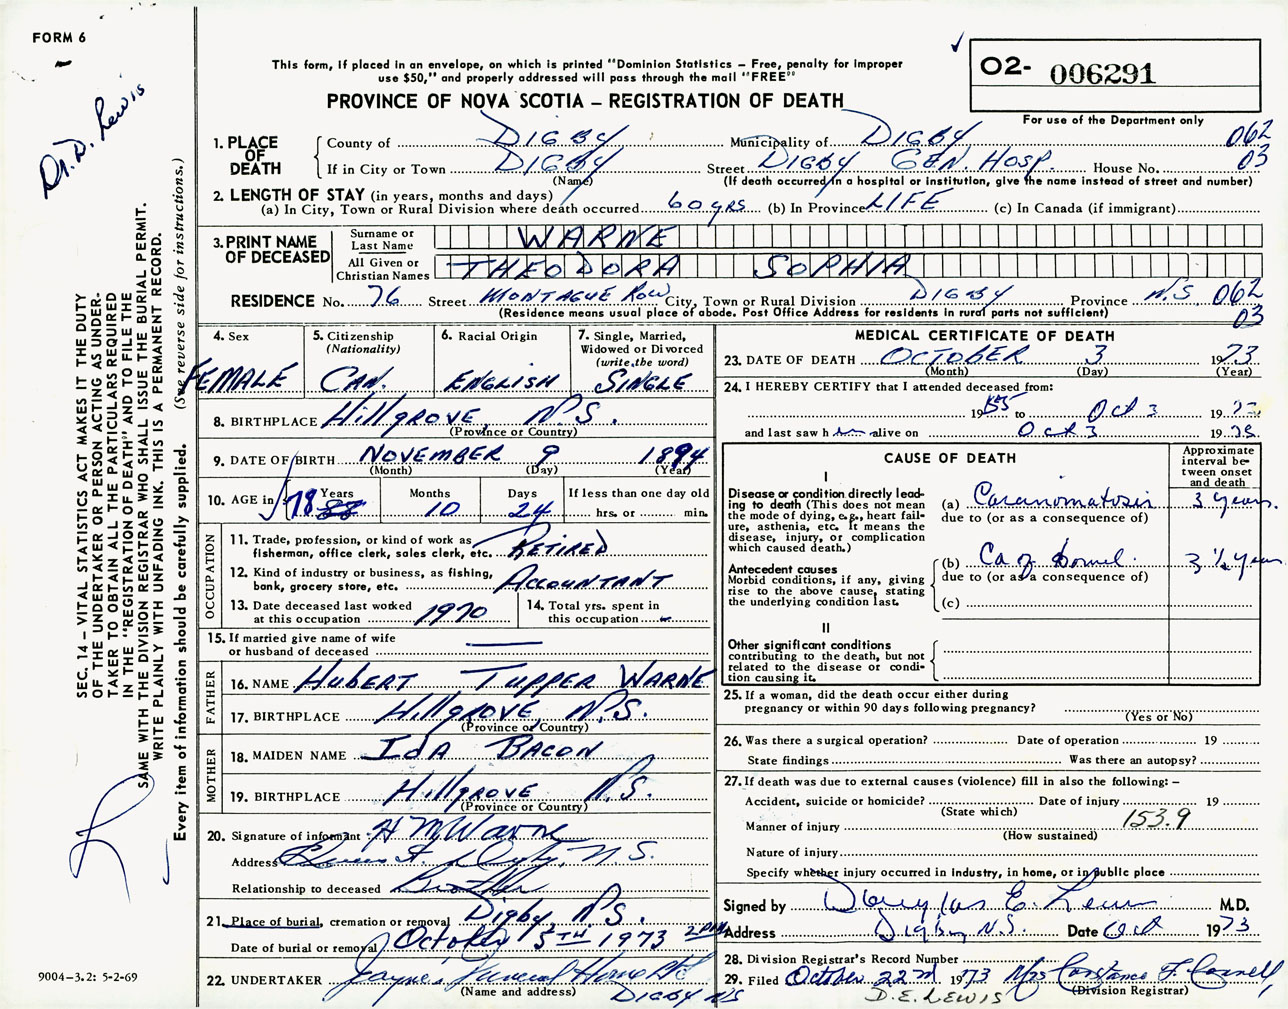 FORM 6
Dr. D. Lewis
This form, if placed in an envelope, on which is printed "Dominion Statistics – Free, penalty for improper
use $50," and properly addressed will pass through the mail "FREE"
PROVINCE OF NOVA SCOTIA – REGISTRATION OF DEATH
O2- 006291
For use of the Department only
1. PLACE OF DEATH
County of DIGBY Municipality of DIGBY 062
If in City or Town DIGBY Street DIGBY GEN. HOSP. House No. 03
(Name) (If death occurred in a hospital or institution, give the name instead of street and number)
2. LENGTH OF STAY (in years, months and days)
(a) In City, Town or Rural Division where death occurred 60 yrs (b) In Province LIFE (c) In Canada (if immigrant)
3. PRINT NAME OF DECEASED
Surname or Last Name WARNE
All Given or Christian Names THEODORA SOPHIA
RESIDENCE No. 76 Street MONTAGUE ROW City, Town or Rural Division DIGBY Province N.S. 062
(Residence means usual place of abode. Post Office Address for residents in rural parts not sufficient) 03
4. Sex FEMALE
5. Citizenship (Nationality) CAN.
6. Racial Origin ENGLISH
7. Single, Married, Widowed or Divorced (write the word) SINGLE
8. BIRTHPLACE Hillgrove, N.S.
(Province or Country)
9. DATE OF BIRTH NOVEMBER 9 1894
(Month) (Day) (Year)
10. AGE in 78 Years Months 10 Days 24 If less than one day old hrs. or min.
OCCUPATION
11. Trade, profession, or kind of work as fisherman, office clerk, sales clerk, etc. RETIRED
12. Kind of industry or business, as fishing, bank, grocery store, etc. ACCOUNTANT
13. Date deceased last worked at this occupation 1970
14. Total yrs. spent in this occupation
15. If married give name of wife or husband of deceased
FATHER
16. NAME HUBERT TUPPER WARNE
17. BIRTHPLACE Hillgrove, N.S.
(Province or Country)
MOTHER
18. MAIDEN NAME IDA BACON
19. BIRTHPLACE Hillgrove N.S.
(Province or Country)
20. Signature of informant H M Warne
Address Digby, N.S.
Relationship to deceased Brother
21. Place of burial, cremation or removal Digby, N.S.
Date of burial or removal October 5TH 1973 2 PM
22. UNDERTAKER Jayne's Funeral Home Ltd
(Name and address) DIGBY NS
MEDICAL CERTIFICATE OF DEATH
23. DATE OF DEATH OCTOBER 3 1973
(Month) (Day) (Year)
24. I HEREBY CERTIFY that I attended deceased from:
1955 to Oct 3 1973
and last saw her alive on Oct 3 1973
CAUSE OF DEATH
Approximate interval between onset and death
I
Disease or condition directly leading to death (This does not mean the mode of dying, e.g., heart failure, asthenia, etc. It means the disease, injury, or complication which caused death.)
(a) Carcinomatosis 3 years.
due to (or as a consequence of)
Antecedent causes
Morbid conditions, if any, giving rise to the above cause, stating the underlying condition last.
(b) Ca of bowel. 3 ½ years
due to (or as a consequence of)
(c)
II
Other significant conditions
contributing to the death, but not related to the disease or condition causing it.
25. If a woman, did the death occur either during
pregnancy or within 90 days following pregnancy?
(Yes or No)
26. Was there a surgical operation? Date of operation 19
State findings Was there an autopsy?
27. If death was due to external causes (violence) fill in also the following: –
Accident, suicide or homicide? Date of injury 19
(State which)
Manner of injury 153.9
(How sustained)
Nature of injury
Specify whether injury occurred in industry, in home, or in public place
Signed by Douglas E. Lewis M.D.
Address Digby N.S. Date Oct 1973
28. Division Registrar's Record Number
29. Filed October 22nd 1973 Mrs Constance F. Connell
(Division Registrar)
D. E. LEWIS
SEC. 14 – VITAL STATISTICS ACT MAKES IT THE DUTY
OF THE UNDERTAKER OR PERSON ACTING AS UNDER-
TAKER TO OBTAIN ALL THE PARTICULARS REQUIRED
IN THE "REGISTRATION OF DEATH" AND TO FILE THE
SAME WITH THE DIVISION REGISTRAR WHO SHALL ISSUE THE BURIAL PERMIT.
WRITE PLAINLY WITH UNFADING INK. THIS IS A PERMANENT RECORD.
Every item of information should be carefully supplied. (See reverse side for instructions.)
9004–3.2: 5-2-69